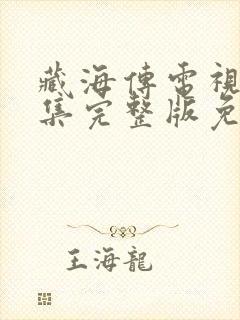 藏海傳電視
集完整版免
王海龍